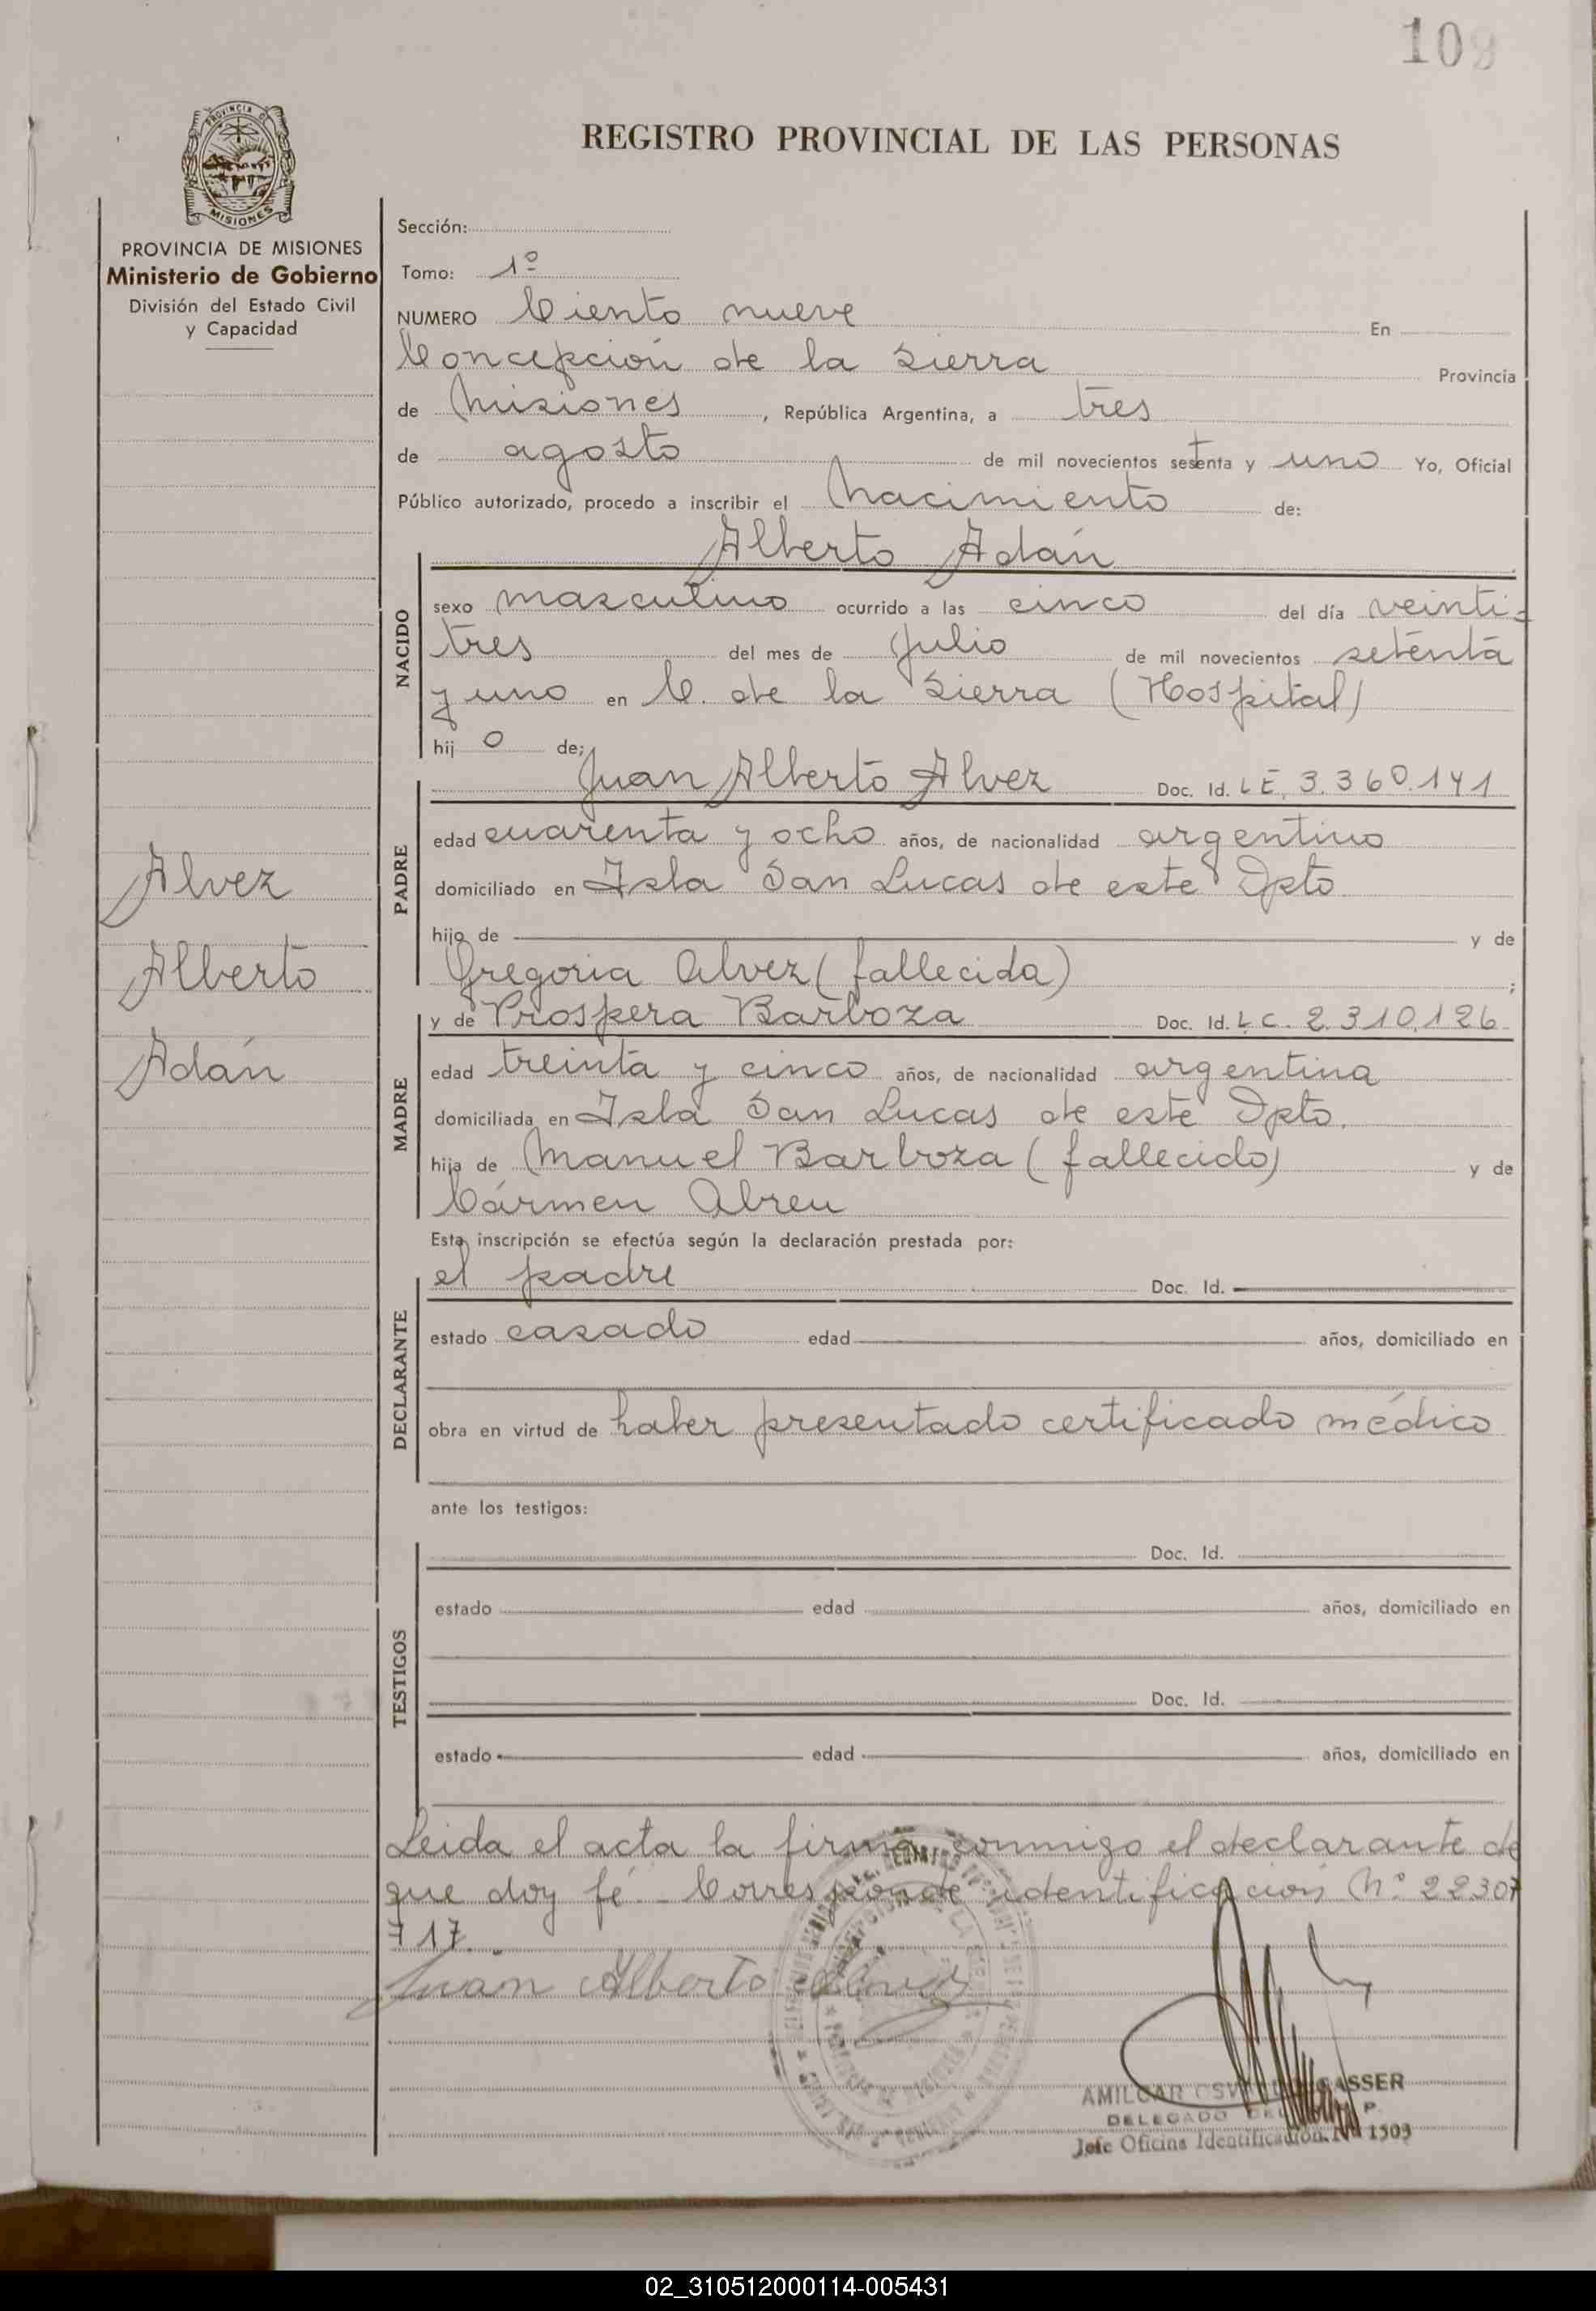 109
REGISTRO PROVINCIAL DE LAS PERSONAS
PROVINCIA DE MISIONES
PROVINCIA DE MISIONES
Ministerio de Gobierno
División del Estado Civil
y Capacidad
Alvez
Alberto
Adán
Sección:
Tomo: 1º
NUMERO Ciento nueve En
Concepción de la Sierra Provincia
de Misiones, República Argentina, a tres
de agosto de mil novecientos setenta y uno Yo, Oficial
Público autorizado, procedo a inscribir el Nacimiento de:
Alberto Adán
NACIDO
sexo masculino ocurrido a las cinco del día veinti-
tres del mes de Julio de mil novecientos setenta
y uno en C. de la Sierra (Hospital)
hij o de;
PADRE
Juan Alberto Alvez Doc. Id. L E. 3.360.141
edad cuarenta y ocho años, de nacionalidad argentino
domiciliado en Isla San Lucas de este Dpto
hijo de y de
Gregoria Alvez (fallecida) ;
MADRE
y de Prospera Barboza Doc. Id. L. C. 2.310.126
edad treinta y cinco años, de nacionalidad argentina
domiciliada en Isla San Lucas de este Dpto.
hija de Manuel Barboza (fallecido) y de
Cármen Abreu
Esta inscripción se efectúa según la declaración prestada por:
DECLARANTE
el padre Doc. Id.
estado casado edad años, domiciliado en
obra en virtud de haber presentado certificado médico
ante los testigos:
TESTIGOS
Doc. Id.
estado edad años, domiciliado en
Doc. Id.
estado edad años, domiciliado en
Leida el acta la firma conmigo el declarante de
que doy fé.- Corresponde identificación Nº 22307
717.
Juan Alberto Alvez
AMILCAR GASSER
DELEGADO
Jefe Oficina Identificación Nº 1503
02_310512000114-005431